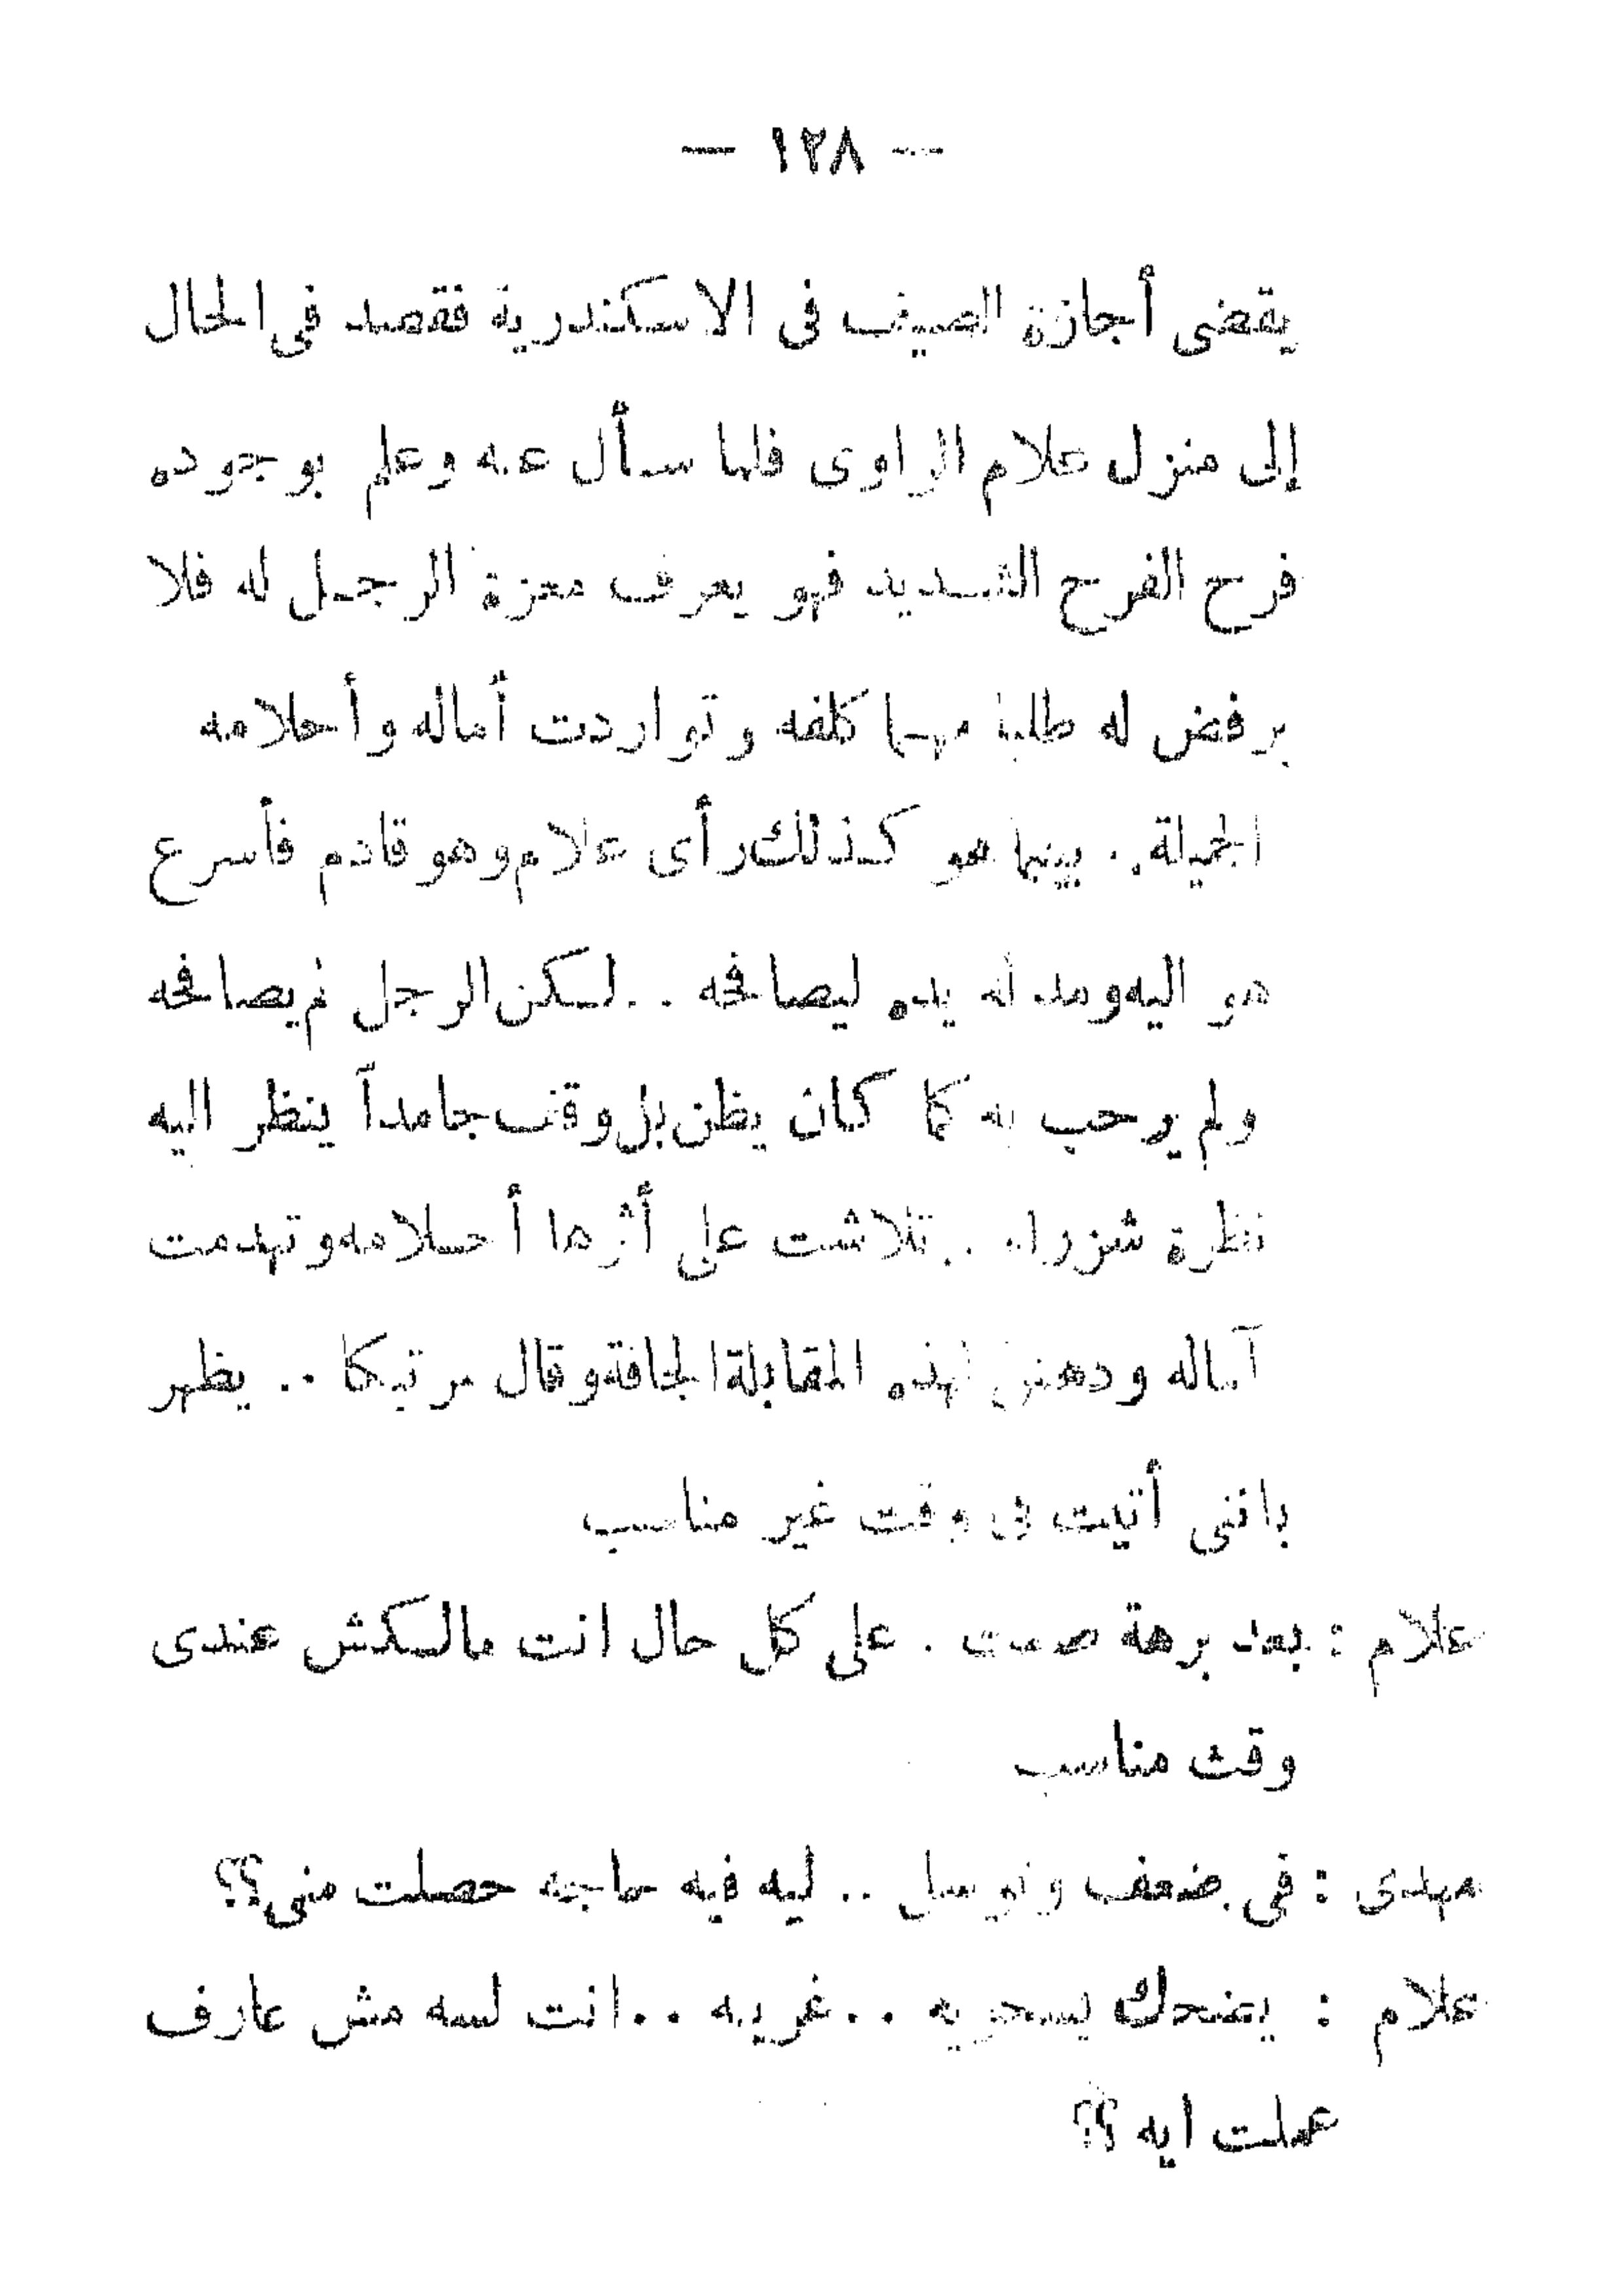 — ١٢٨ —
يقضى أجازة الصيف فى الاسكندرية فقصد فى الحال
إلى منزل علام الراوى فلما سأل عنه وعلم بوجوده
فرح الفرح الشديد فهو يعرف معزة الرجل له فلا
يرفض له طلبا مهما كلفه وتواردت أماله وأحلامه
الجميلة . بينما هو كذلك رأى علام وهو قادم فأسرع
هو اليه ومد له يده ليصافحه .. لكن الرجل لم يصافحه
ولم يرحب به كما كان يظن بل وقف جامداً ينظر اليه
نظرة شزراء .. تلاشت على أثرها أحلامه وتهدمت
آماله ودهش لهذه المقابلة الجافة وقال مرتبكا .. يظهر
باننى أتيت فى وقت غير مناسب
علام : بعد برهة صمت . على كل حال انت مالكش عندى
وقت مناسب
مهدى : فى ضعف وتوسل .. ليه فيه حاجه حصلت منى؟؟
علام : يضحك بسخريه .. غريبه .. انت لسه مش عارف
عملت ايه ؟؟